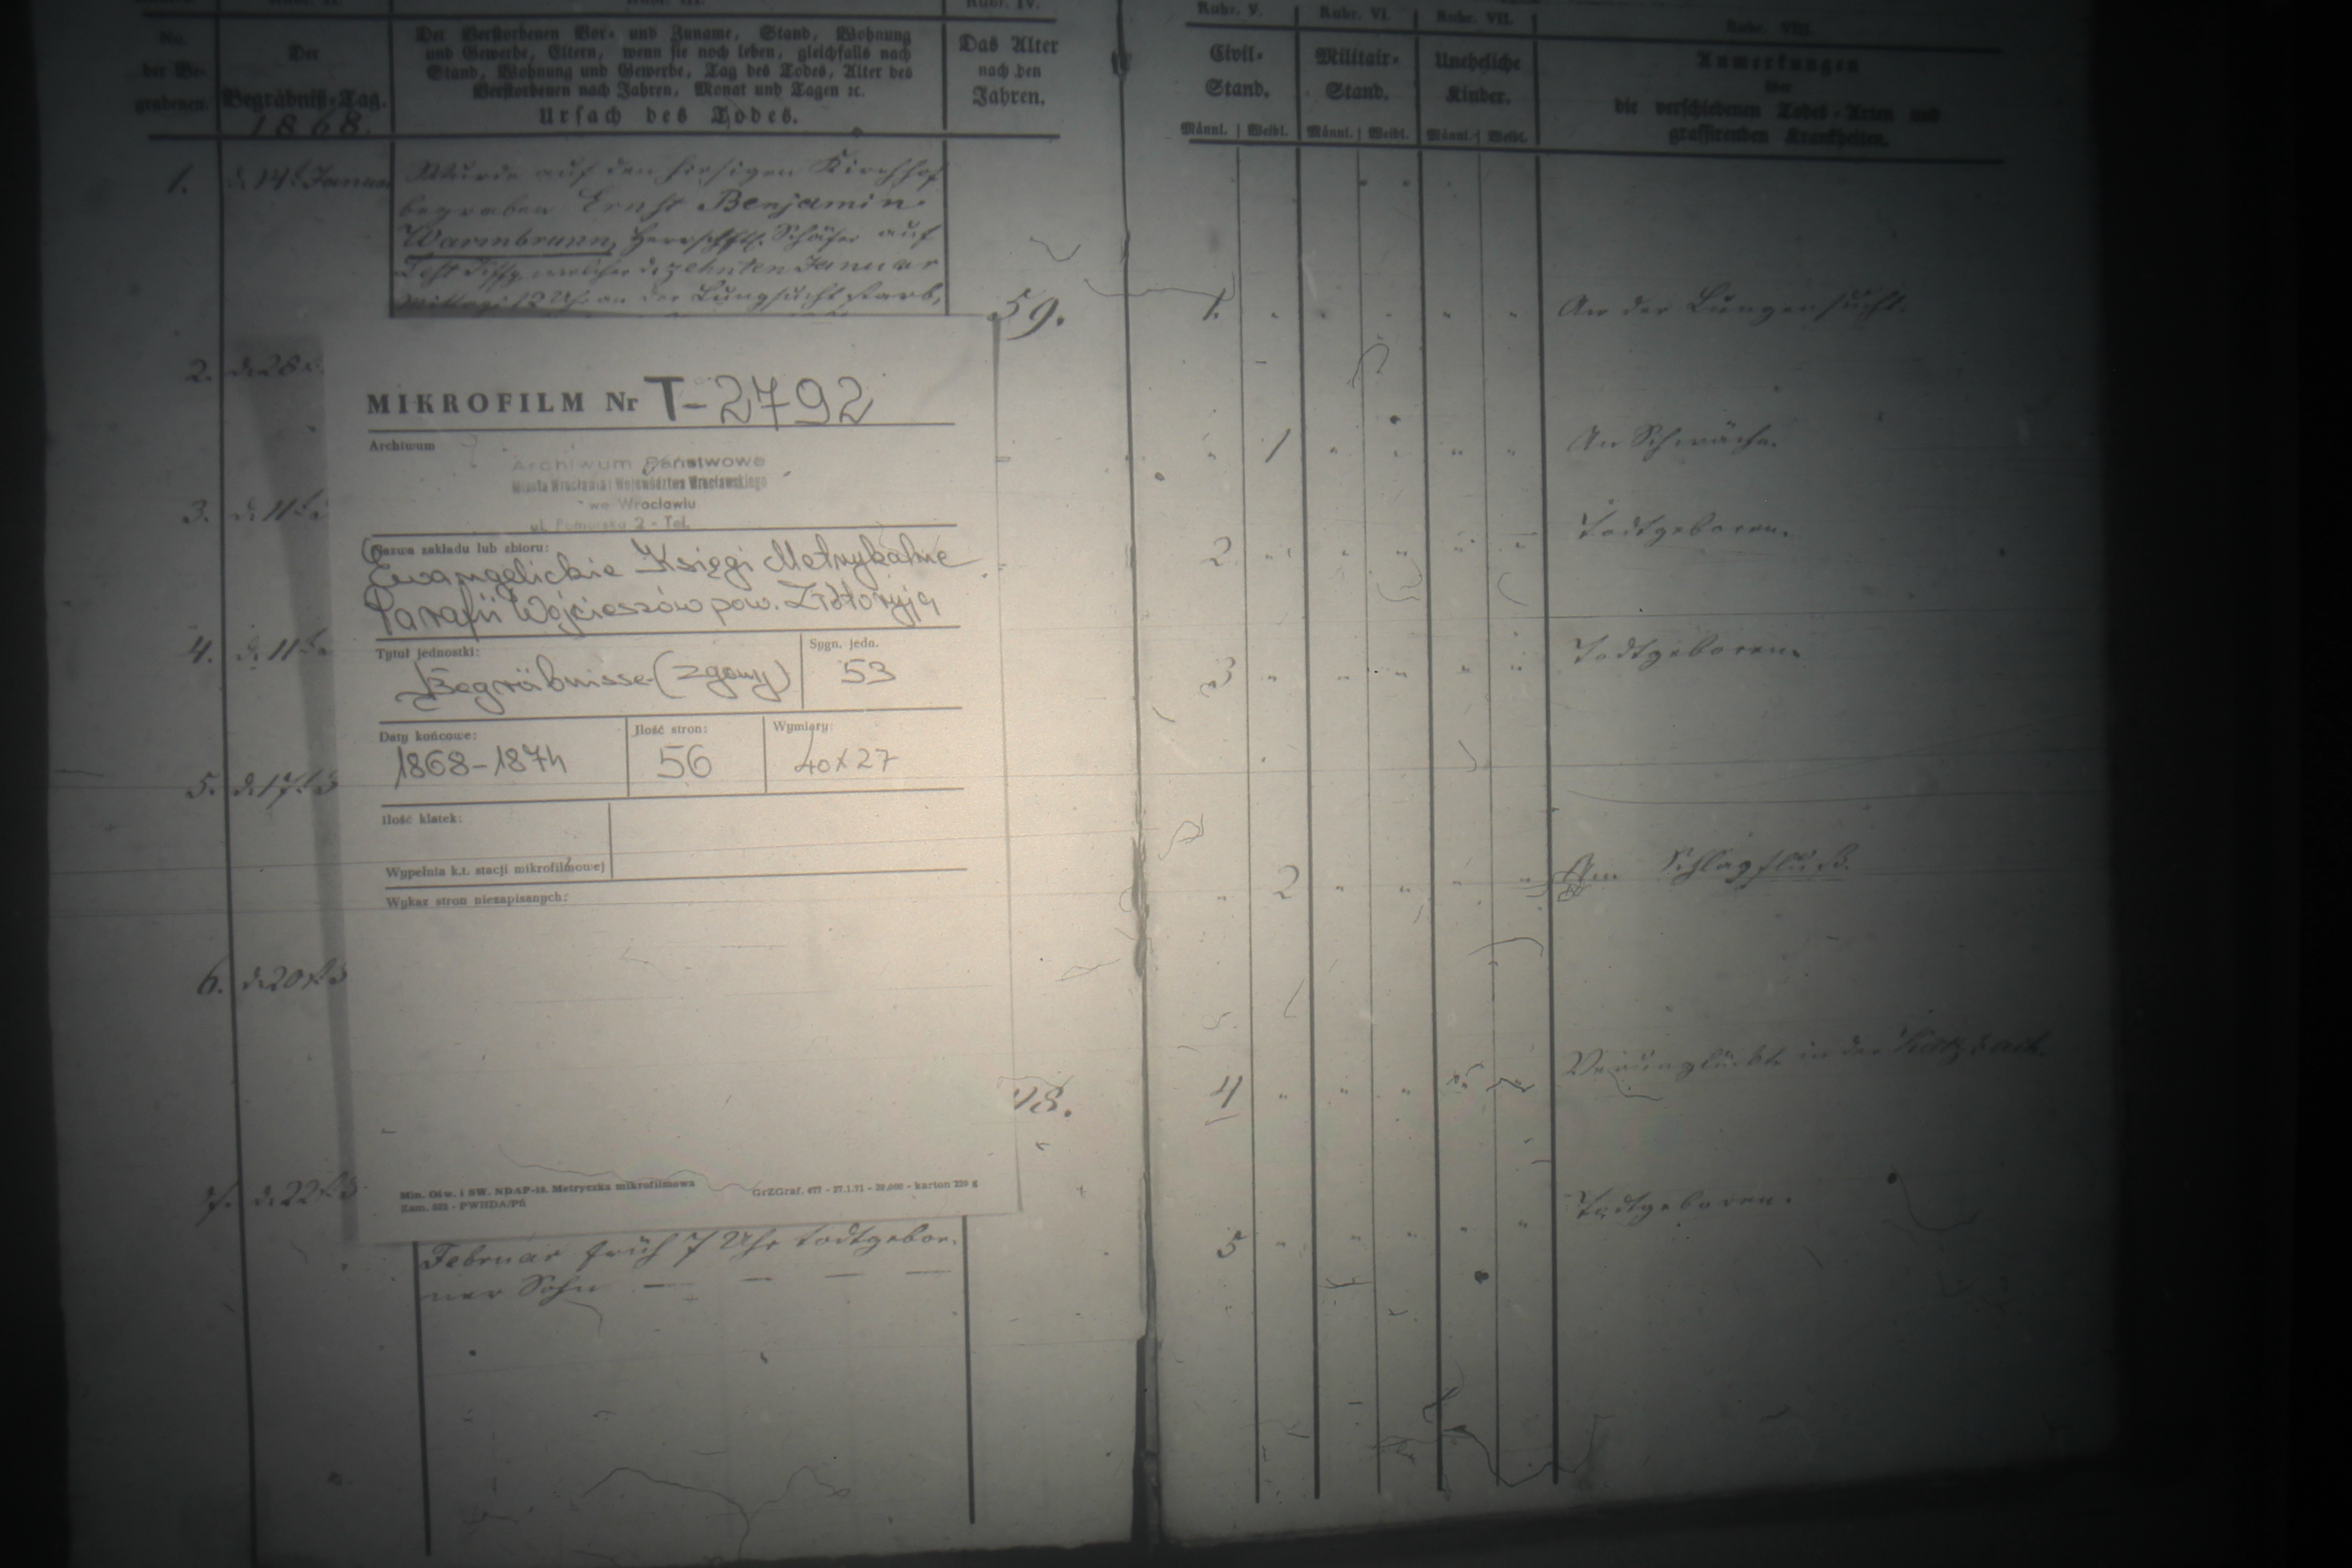 Rubr. IV.
No.
der Be-
grabenen.
Der
Begräbniß-Tag.
1868.
Der Verstorbenen Vor- und Zuname, Stand, Wohnung
und Gewerbe, Eltern, wenn sie noch leben, gleichfalls nach
Stand, Wohnung und Gewerbe, Tag des Todes, Alter des
Verstorbenen nach Jahren, Monat und Tagen ꝛc.
Ursach des Todes.
Das Alter
nach den
Jahren.
1.
d. 14t. Januar
Wurde auf den hiesigen Kirchhof
begraben Ernst Benjamin
Warmbrunn, Herrschftl. Schäfer auf
welcher d. zehnten Januar
Mittags 12 Uhr an der Lungsucht starb,
59.
2. d. 28
3. d. 11t.
4. d. 11t.
5. d. 17t.
6. d. 20t.
48.
7. d. 22t.
MIKROFILM Nr T-2792
Archiwum
Archiwum Państwowe
Miasta Wrocławia i Województwa Wrocławskiego
we Wrocławiu
ul. Pomorska 2 - Tel.
Nazwa zakładu lub zbioru:
Ewangelickie Księgi Metrykalne
Parafii Wojcieszów pow. Złotoryja
Tytuł jednostki:
Begräbnisse (zgony)
Sygn. jedn.
53
Daty końcowe:
1868-1874
Ilość stron:
56
Wymiary:
40x27
Ilość klatek:
Wypełnia k.t. stacji mikrofilmowej
Wykaz stron niezapisanych:
Min. Ośw. i SW. NDAP-18. Metryczka mikrofilmowa
GrZGraf. 477 - 27.1.71 - 20.000 - karton 220 g
Februar früh 7 Uhr todtgebor-
ner Sohn — — — —
Rubr. V.
Rubr. VI.
Rubr. VII.
Rubr. VIII.
Civil-
Stand.
Militair-
Stand.
Uneheliche
Kinder.
Anmerkungen
über
die verschiedenen Todes-Arten und
grassirenden Krankheiten.
Männl. | Weibl. Männl. | Weibl. Männl. | Weibl.
1. " " " " " An der Lungensucht.
" 1 " " " " An Schwäche.
2 " " " " " Todtgeboren.
3 " " " " " Todtgeboren.
" 2 " " " " Am Schlagfluß.
4 " " " " " Verunglückt in der Katzbach.
5 " " " " " Todtgeboren.